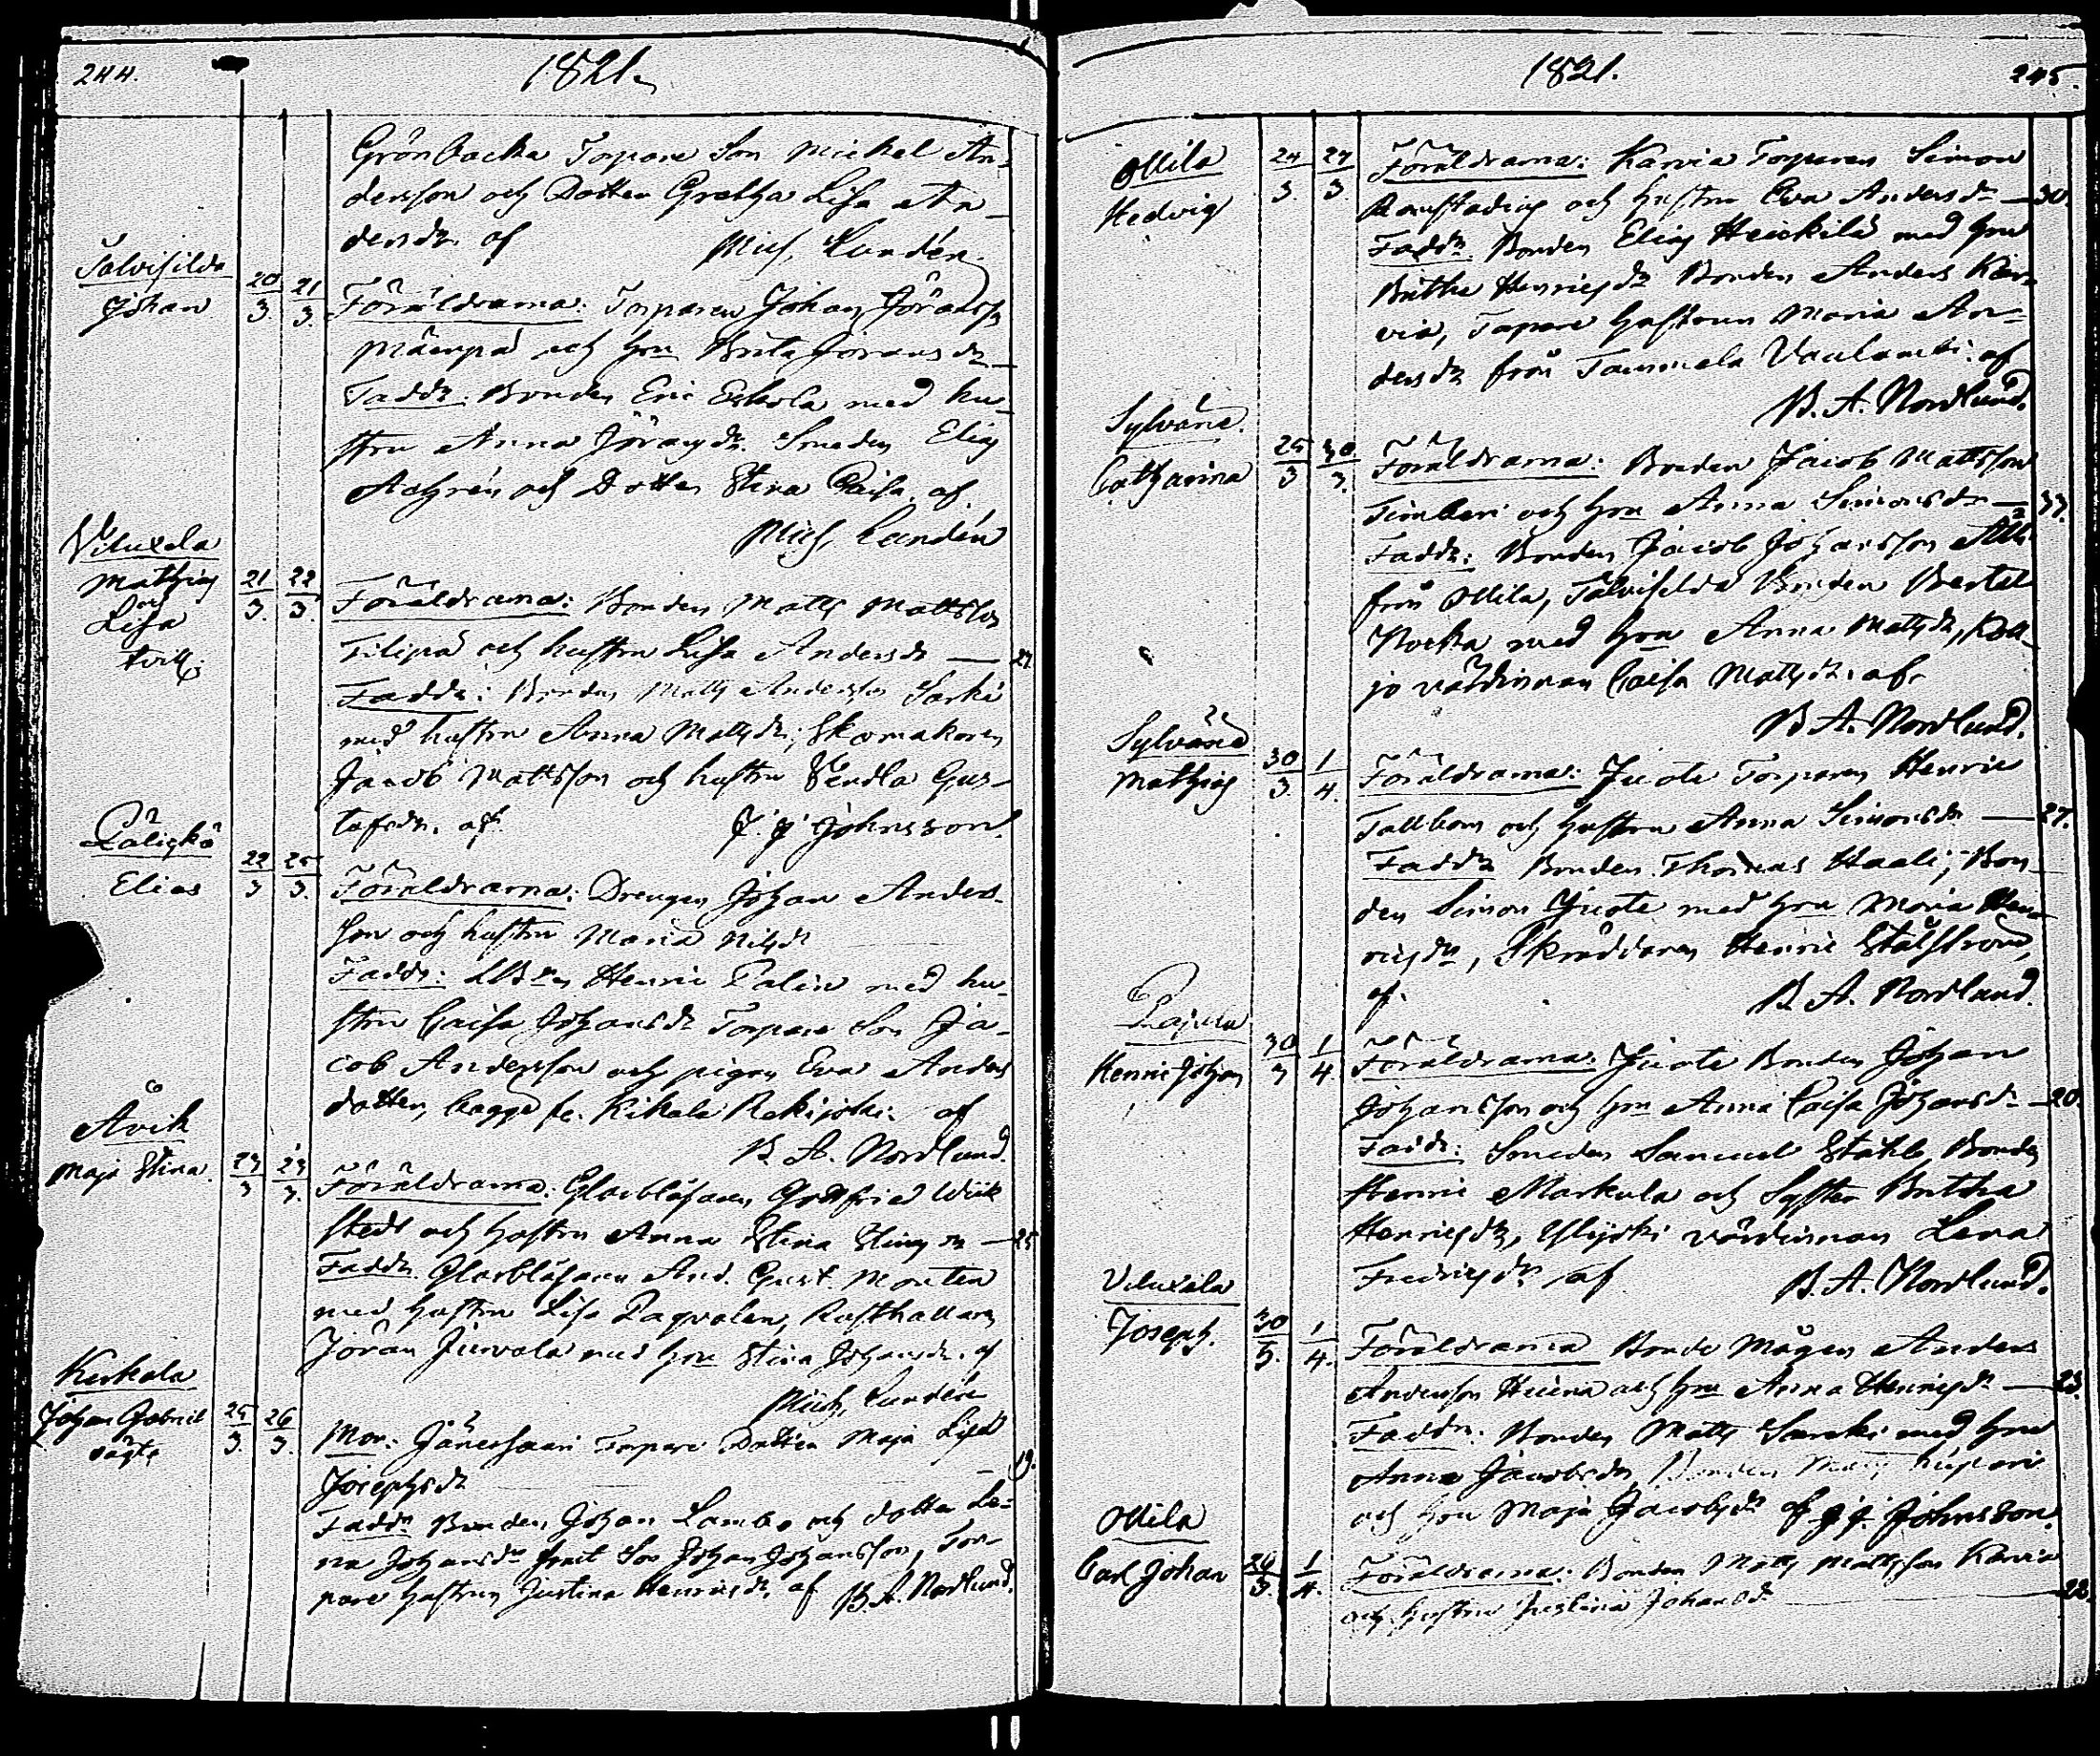 244.
1821.
Grönbacka Torpare Son Mickel An-
dersson och Dotter Gretha Lisa An-
dersdr. af Mich. Lundén.
Salvisilda
Johan 20/3. 21/3. Föräldrarna: Torparen Johan Jöransson
och hru Brita Göransdr
Faddr. Bonden Eric Eskola med hu-
stru Anna Jöransdr. Smeden Elias
och Dotter Stina Caisa. af
Mich. Lundén
Viluxela
Mathias 21/3. 22/3. Föräldrarna: Bonden Matts Mattsson
och
Lisa
Tvill.
Filpa och hustru Lisa Andersdr — 27.
Faddr: Bonden Matts Andersson Sarki
med hustru Anna Mattsdr, Skomakaren
Jacob Mattsson och hustru Vendla Gus-
tafsdr. af J. J. Johnsson.
Påliskå
Elias 22/3 25/3. Föräldrarna: Drengen Johan Anders-
son och hustru Maria Nilsdr
Faddr: Henric Palin med hu-
stru Caisa Johansdr Torpare Son Ja-
cob Andersson och pigan Eva Anders
dotter, bagge fr. Kikala Rekijoki. af
B. A. Nordlund.
Åvik
Maja Stina. 23/3 23/3. Föräldrarna: Glasblåsaren Gottfried Wik
stedt och hustru Anna Stina — 25
Faddr. Glasblåsaren And. Gust. Monten
med hustru Lisa Paqvalen, Rusthållaren
Jöran Jurvala med hru Stina Johansdr. af
Mich. Lundén
Kerkola
Johan Gabriel 25/3. 26/3. Mor: Torpare Dotter Maja Lisa
oägta
Josephsdr — 19.
Faddr Bonden Johan Lambo och dotter Le-
na Johansdr Son Johan Johansson, Tor-
pare hustrun Justina Henricsdr. af B. A. Nordlund.
1821.
245.
Ollila
Hedvig 24/3. 27/3. Föräldrarna: Karvia Torparen Simon
och hustru Eva Andersdr — 30.
Faddr Bonden Elias Heickilä med hru
Britha Henricsdr Bonden Anders Kar-
via, Torpare hustrun Maria An-
dersdr från Tammela af
B. A. Nordlund.
Sylvänä.
Catharina 25/3 30/3. Föräldrarna: Bonden Jacob Mattsson
Timberi och hru Anna Simonsdr — 33.
Faddr: Bonden Jacob Johansson
från Ollila, Talvisilda Bonden Bertel
Nocka med hru Anna Mattsdr, Koll-
jo värdinnan Caisa Mattsdr. af
B. A. Nordlund.
Sylvänä
Mathias 30/3. 1/4. Föräldrarna: Juote Torparen Henric
Tallbom och hustru Anna Simonsdr — 27.
Faddr Bonden Thomas Haali, Bon-
den Simon Juote med hru Maria Hen-
ricsdr, Skräddaren Henric Stålström,
af. B. A. Nordlund.
Pajula
Henric Johan 30/3 1/4 Föräldrarna: Juote Bonden Johan
Johansson och hru Anna Caisa Johansdr — 20.
Faddr: Smeden Samuel Ståhle, Bonden
Henric Markula och Syster Britha
Henricsdr, Ylijoki värdinnan Lena
Fredricsdr af B. A. Nordlund.
Viluxela
Joseph. 30/3. 1/4. Föräldrarna Bonde Mågen Anders
Andersson och hru Anna Henricsdr — 23.
Faddr. Bonden Matts Sarcki med hru
Anna Jacobsdr, Bonden
och hru Maja Jacobsdr af J. J. Johnsson.
Ollila
Carl Johan 29/3. 1/4. Föräldrarna: Bonden Matts Mattsson Karvia
och hustru Justina Johansdr — 22.